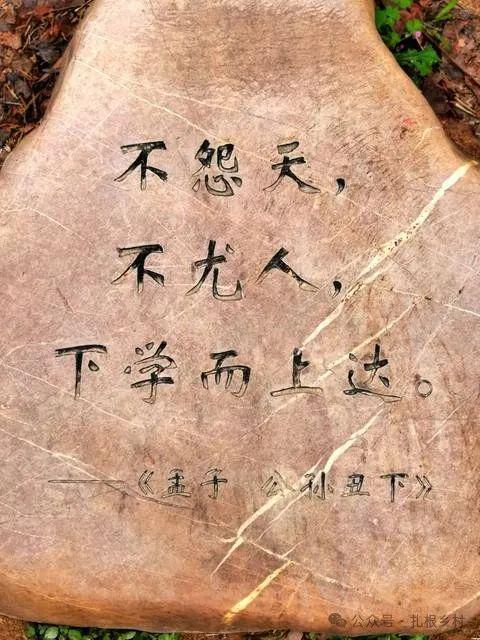 不怨天，
不尤人，
下学而上达。
——《孟子 公孙丑下》
公众号·扎根乡村